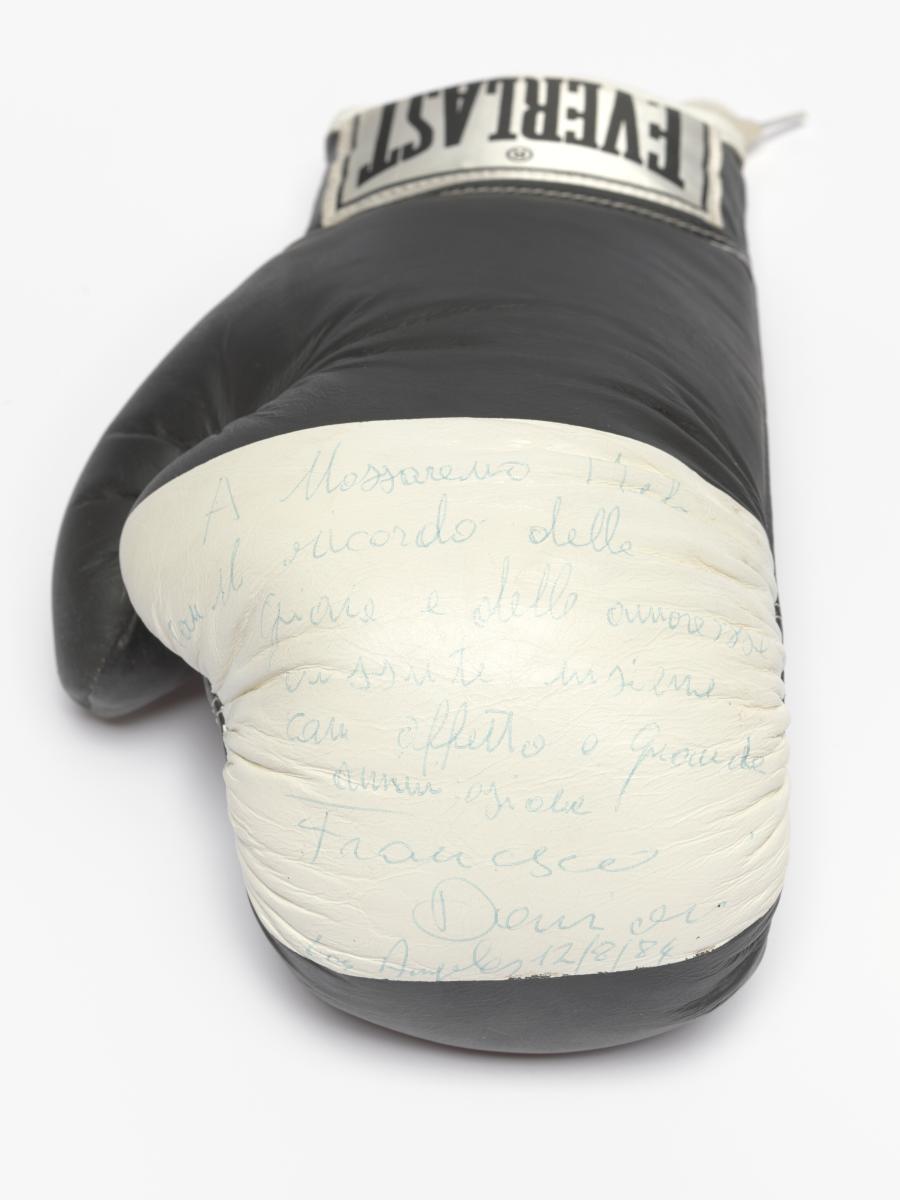 EVERLAST ®
A
con il ricordo delle
gioie e delle amarezze
vissute insieme
con affetto e grande
ammirazione
Francesco
Damiani
Los Angeles 12/8/84